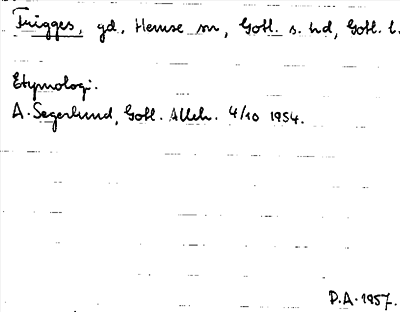 Frigges, gd, Hemse sn, Gotl. s. hd, Gotl. l.
Etymologi.
A. Segerlund, Gotl. Alleh. 4/10 1954.
D.A. 1957.